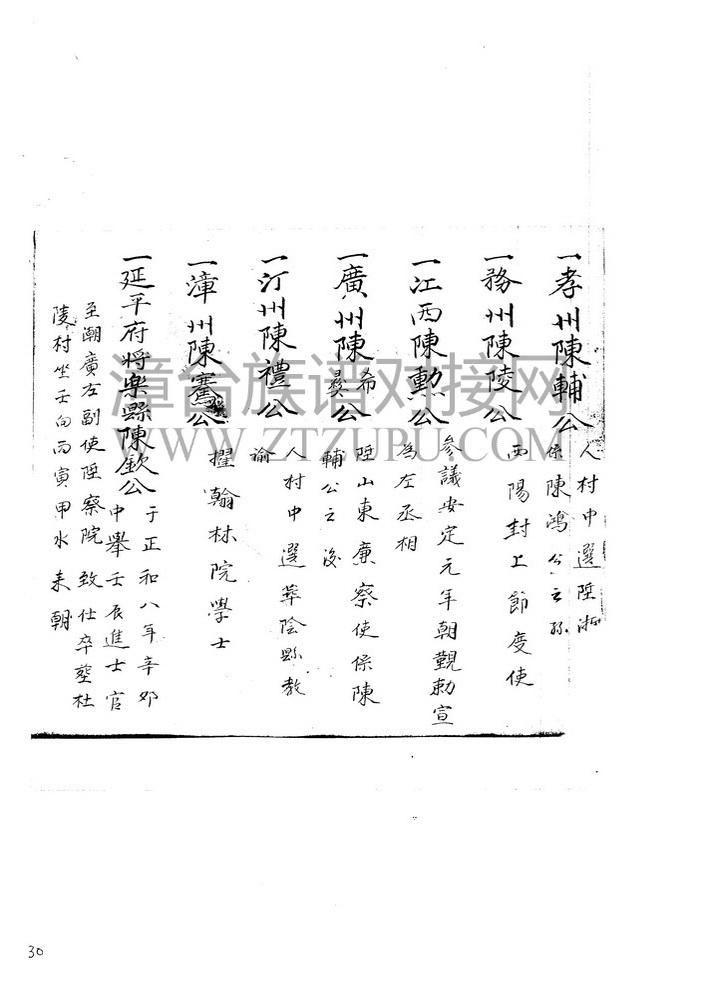 一孝州陳輔公
人村中選陞
係陳鴻公之孫
一務州陳陵公
西陽封上節度使
一江西陳勲公
參議安定元年朝覲勅宣
為左丞相
一廣州陳希彛公
陞山東廉察使係陳
輔公之後
一汀州陳禮公
人村中選華陰縣教
諭
一漳州陳騫公
擢翰林院學士
一延平府将樂縣陳欽公
于正和八年辛夘
中舉壬辰進士官
至湖廣左副使陞察院致仕卒塟杜
陵村坐壬向丙寅甲水来朝
漳台族谱对接网
WWW.ZTZUPU.COM
30